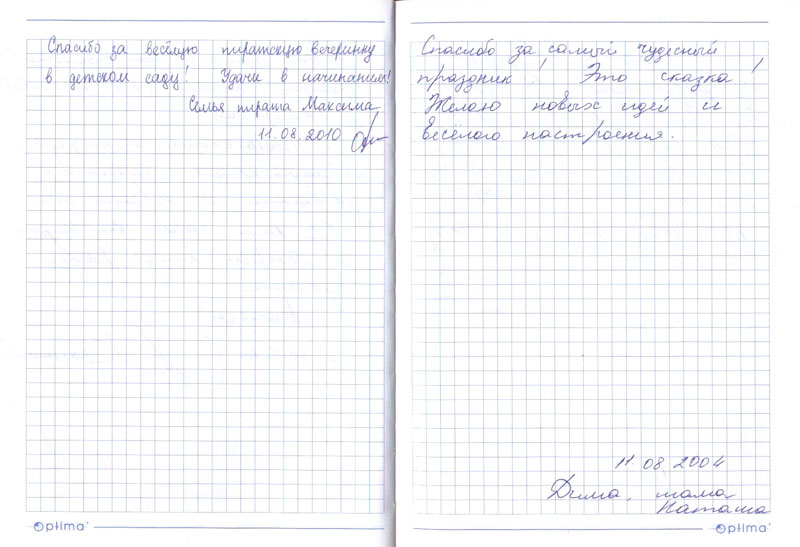 Спасибо за весёлую пиратскую вечеринку
в детском саду! Удачи в начинаниях!
Семья пирата Максима
11.08.2010
Optima
Спасибо за самый чудесный
праздник! Это сказка!
Желаю новых идей и
весёлого настроения.
11.08.2004
Дима, мама
Наташа
Optima